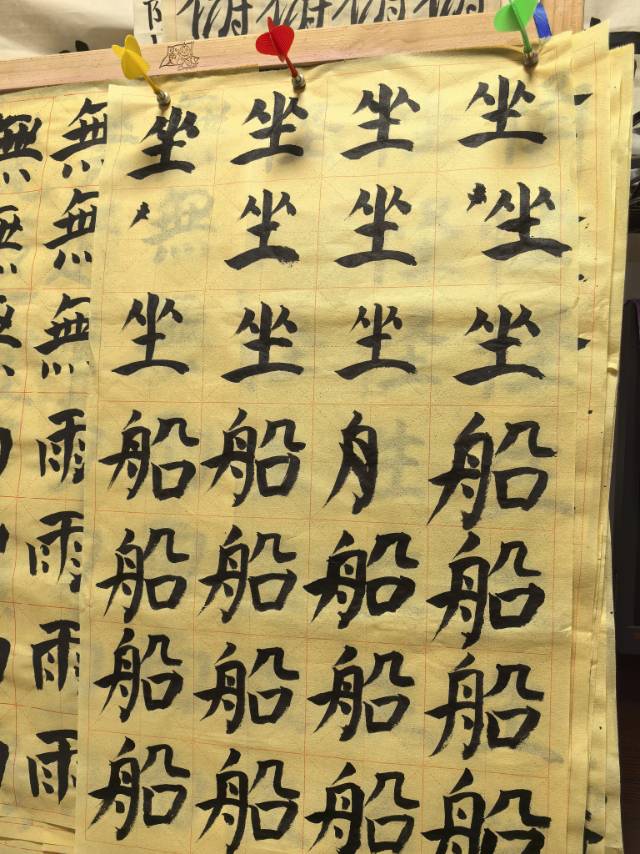 無 無 坐 坐 坐 坐
無 無 坐 坐 坐
無 坐 坐 坐 坐
雨 船 船 船
雨 船 船 船 船
雨 船 船 船 船
雨 船 船 船 船